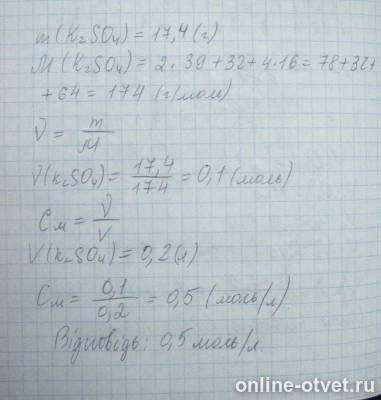 m(K₂SO₄) = 17,4 (г)
M(K₂SO₄) = 2·39 + 32 + 4·16 = 78 + 32 +
+ 64 = 174 (г/моль)
ν = m/M
ν(K₂SO₄) = 17,4/174 = 0,1 (моль)
Cм = ν/V
V(K₂SO₄) = 0,2 (л)
Cм = 0,1/0,2 = 0,5 (моль/л)
Відповідь: 0,5 моль/л.
online-otvet.ru